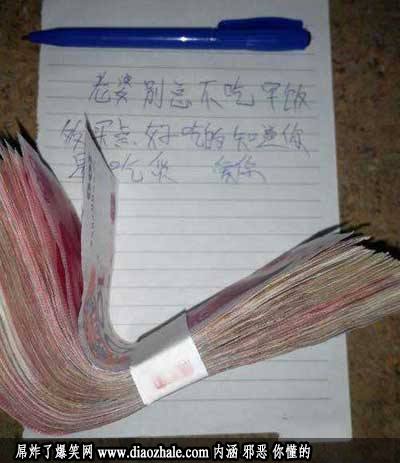 老婆别总不吃早饭
买点好吃的知道你
是吃货
屌炸了爆笑网 www.diaozhale.com 内涵 邪恶 你懂的